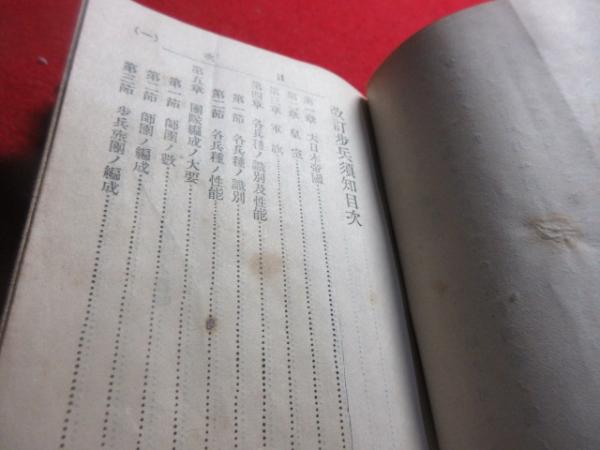 改訂步兵須知目次
第一章 大日本帝國
第二章 皇室
第三章 軍旗
第四章 各兵種ノ識別及性能
第一節 各兵種ノ識別
第二節 各兵種ノ性能
第五章 團隊編成ノ大要
第一節 師團ノ數
第二節 師團ノ編成
第三節 步兵旅團ノ編成
目次
(一)